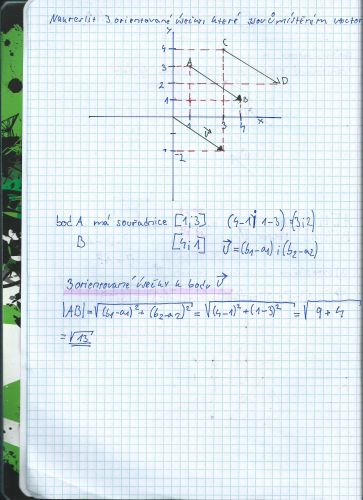 Nakreslit 3 orientované úsečky, které jsou umístěním vector
y
C
4
A
3
2
D
1
B
1
3
4
x
v
-2
bod A má souřadnice [1;3] (4-1; 1-3) = (3;2)
B [4;1] v = (b1-a1) ; (b2-a2)
3 orientované úsečky k bodu v
|AB| = √(b1-a1)² + (b2-a2)² = √(4-1)² + (1-3)² = √9+4
= √13